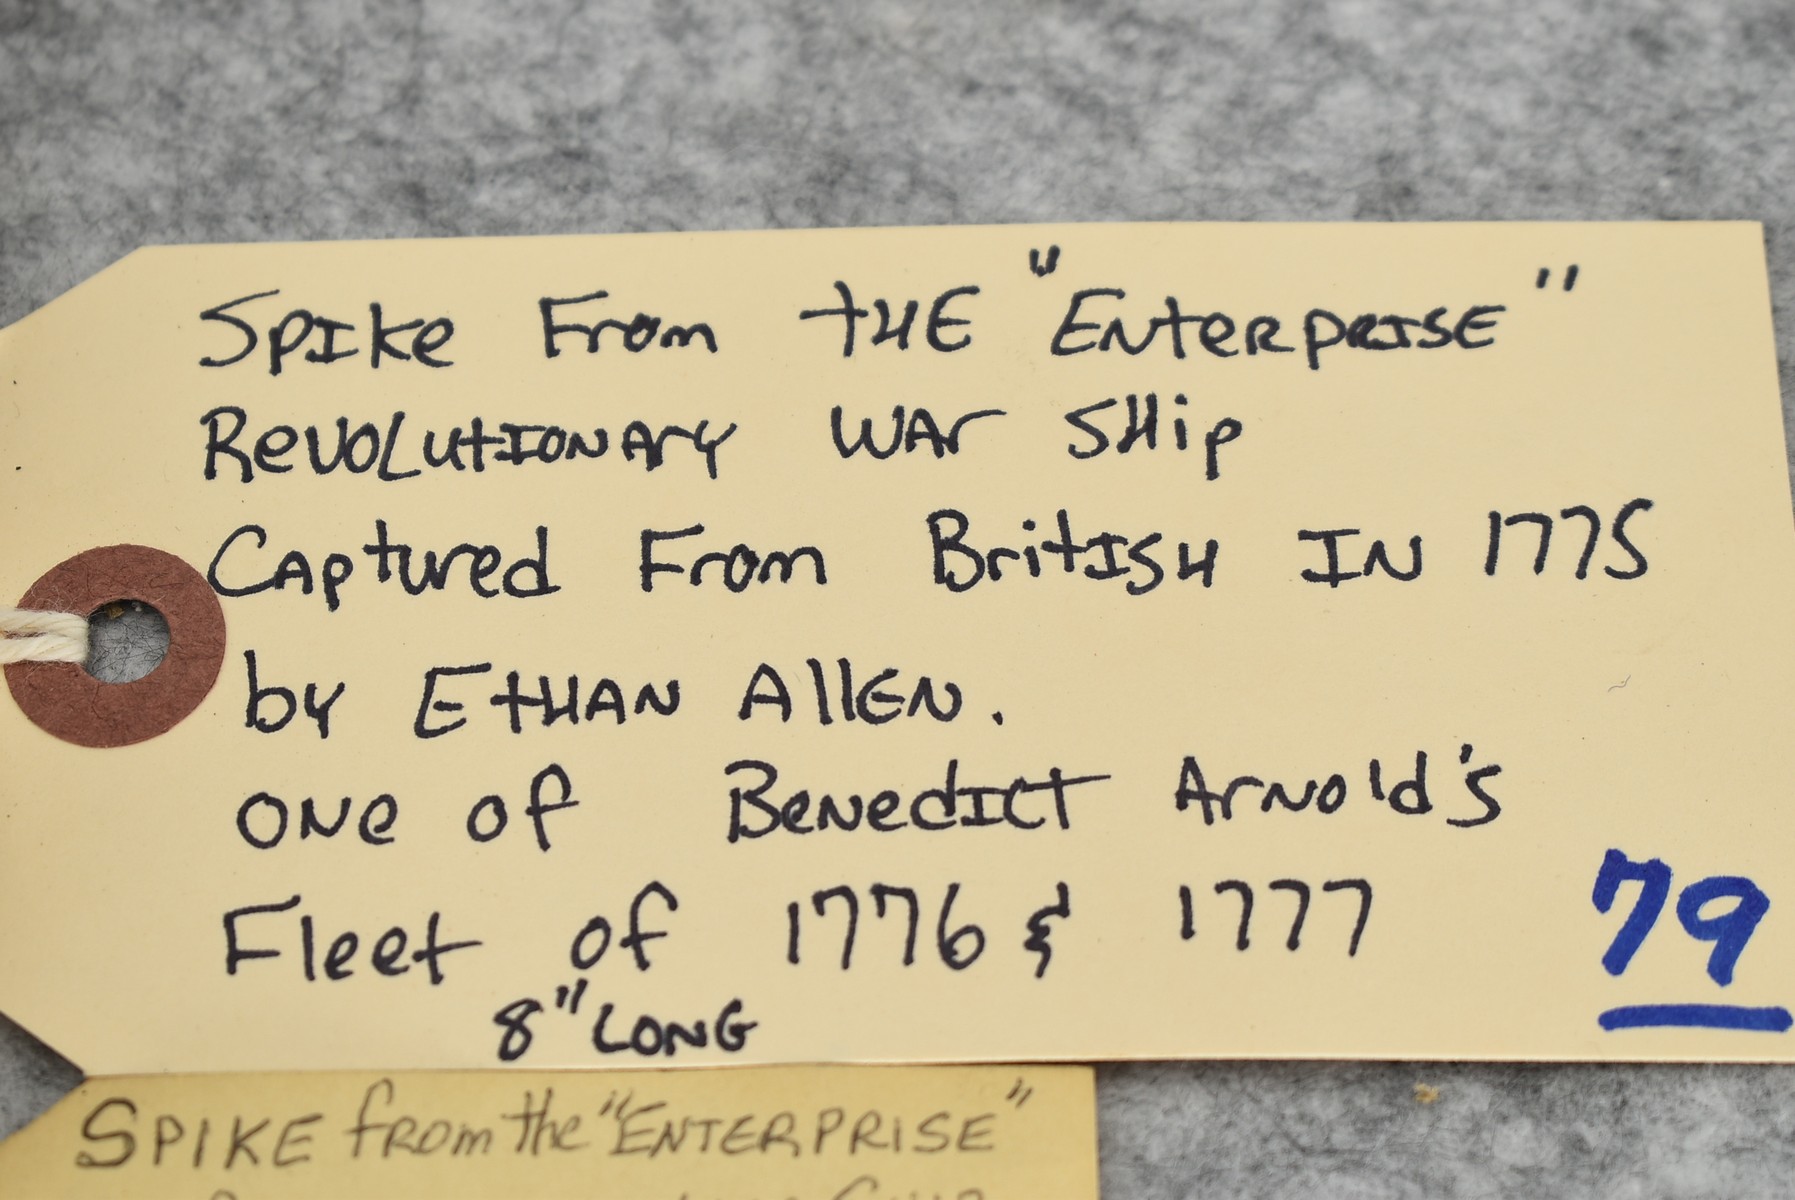 Spike From the "Enterprise"
Revolutionary War Ship
Captured From British in 1775
by Ethan Allen.
one of Benedict Arnold's
Fleet of 1776 & 1777
8" Long
79
Spike from the "Enterprise"